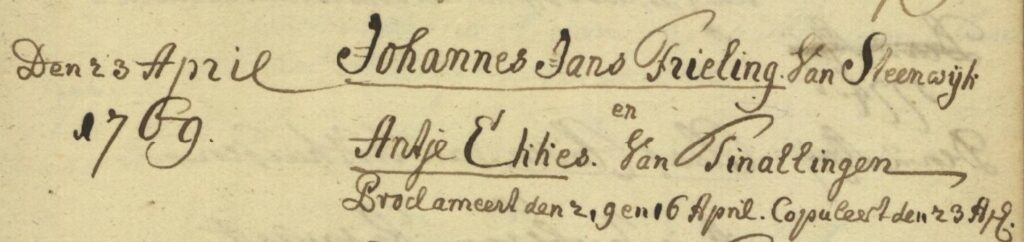 Den 23 April Johannes Jans Frieling. Van Steenwijk
1769. en
Antje Ekkes. Van Tinallingen
Proclameert den 2, 9 en 16 April. Copuleert den 23 Apl.